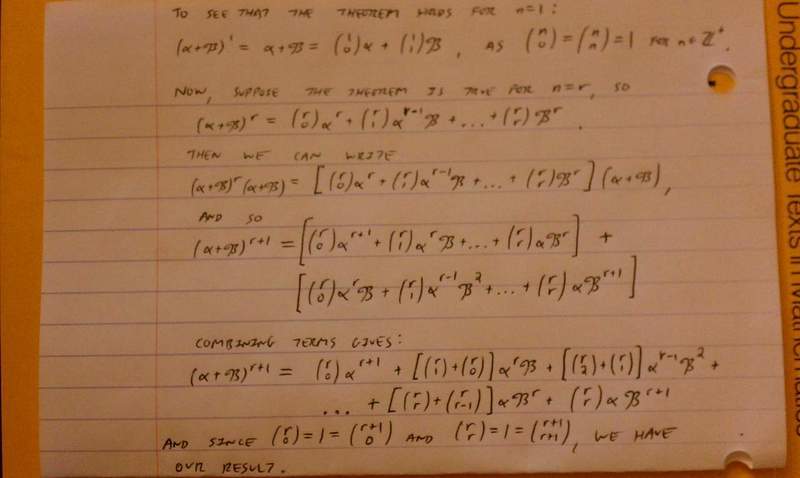 TO SEE THAT THE THEOREM HOLDS FOR n=1:
(α+ℬ)¹ = α+ℬ = (1 0)α + (1 1)ℬ, AS (n 0) = (n n) = 1 FOR n∈ℤ⁺.
NOW, SUPPOSE THE THEOREM IS TRUE FOR n=r, SO
(α+ℬ)^r = (r 0)α^r + (r 1)α^{r-1}ℬ + ... + (r r)ℬ^r.
THEN WE CAN WRITE
(α+ℬ)^r (α+ℬ) = [(r 0)α^r + (r 1)α^{r-1}ℬ + ... + (r r)ℬ^r](α+ℬ),
AND SO
(α+ℬ)^{r+1} = [(r 0)α^{r+1} + (r 1)α^rℬ + ... + (r r)αℬ^r] +
[(r 0)α^rℬ + (r 1)α^{r-1}ℬ² + ... + (r r)αℬ^{r+1}]
COMBINING TERMS GIVES:
(α+ℬ)^{r+1} = (r 0)α^{r+1} + [(r 1)+(r 0)]α^rℬ + [(r 2)+(r 1)]α^{r-1}ℬ² +
... + [(r r)+(r r-1)]αℬ^r + (r r)αℬ^{r+1}
AND SINCE (r 0)=1=(r+1 0) AND (r r)=1=(r+1 r+1), WE HAVE
OUR RESULT.
Undergraduate Texts in Mathematics